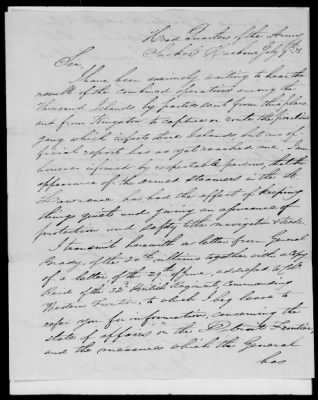 Head Quarters of the Army
Sackets Harbour July 9th 38
Sir,
I have been anxiously waiting to hear the
result of the combined operations among the
Thousand Islands by parties sent from this place
and from Kingston to capture or route the piratical
gang which infests those Islands but no of-
ficial report has as yet reached me. I am
however informed by respectable persons, that the
appearance of the armed steamers in the St.
Lawrence has had the effect of keeping
things quiet and giving an assurance of
protection and safety to the navigation & trade.
I transmit herewith a letter from General
Brady, of the 30th ultimo together with a copy
of a letter of the 29th of June, addressed to
of the 32d British Regiment, commanding
Western Frontier, to which I beg leave to
refer you for information, concerning the
state of affairs in the Detroit Frontier,
and the measures which the General
has